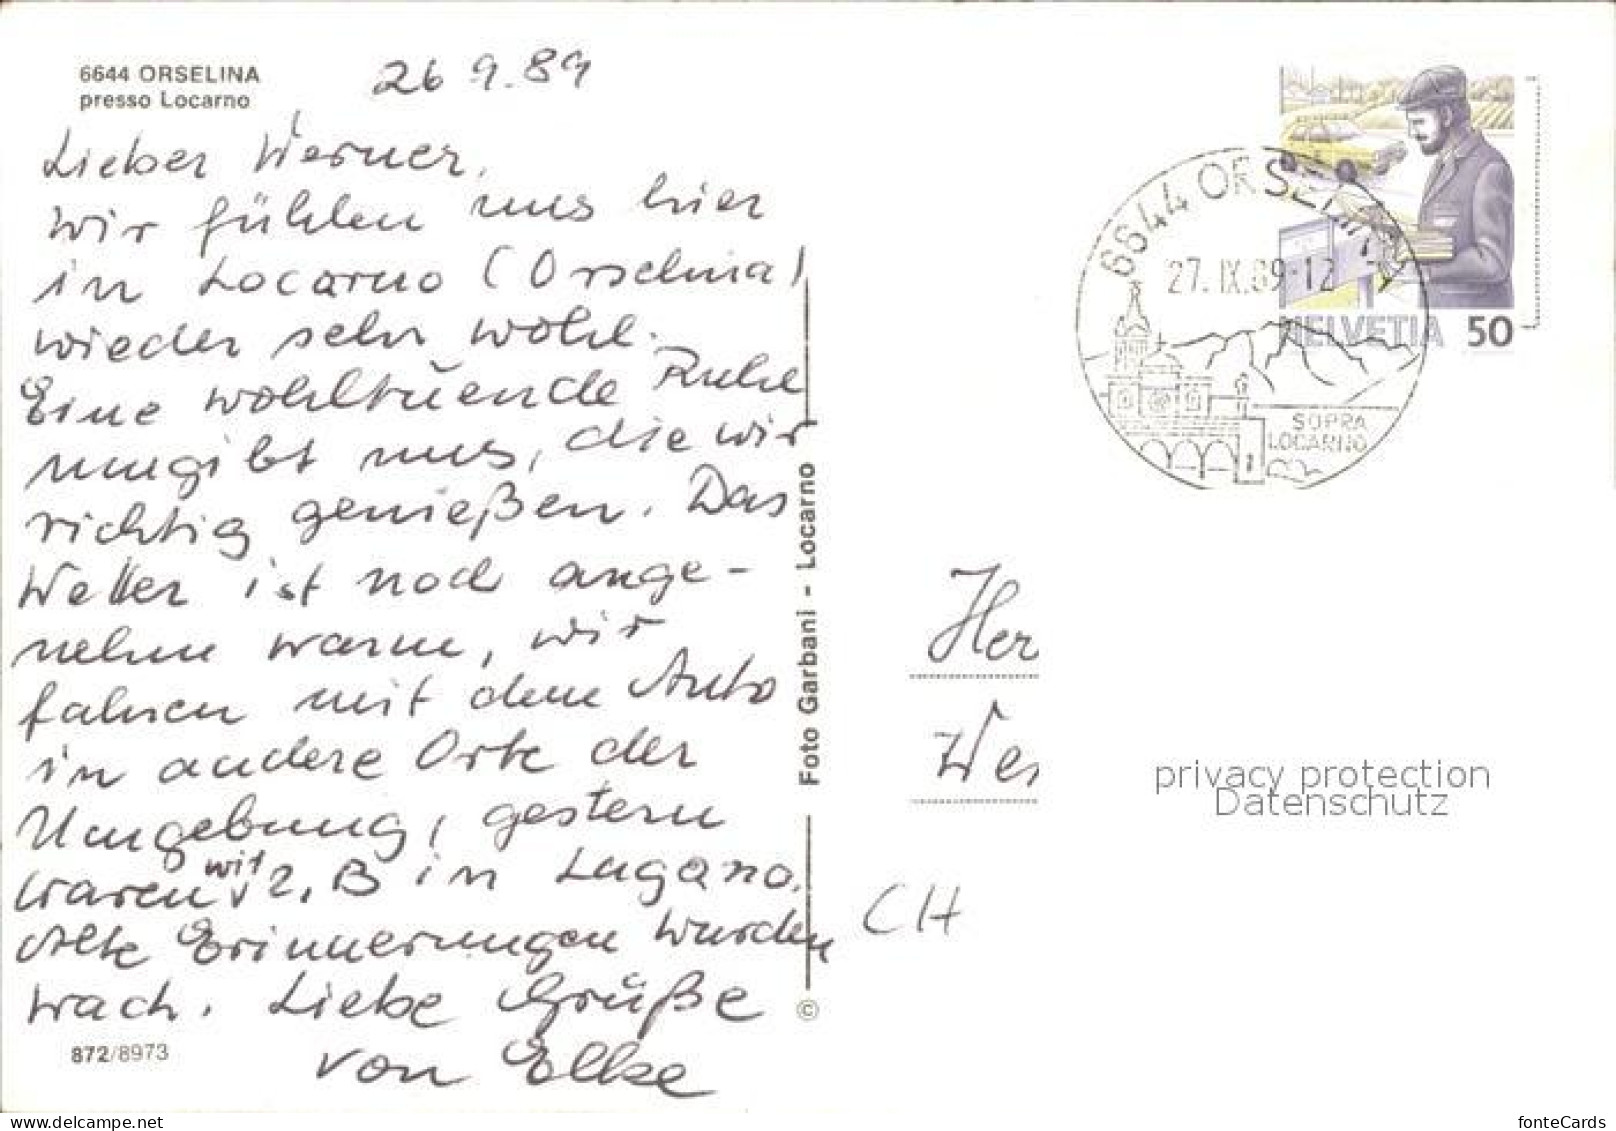 6644 ORSELINA
presso Locarno
26 9.89
Lieber Werner,
wir fühlen uns hier
in Locarno (Orselina)
wieder sehr wohl.
Eine wohltuende Ruhe
umgibt uns, die wir
richtig genießen. Das
Wetter ist noch ange-
nehm warm, wir
fahren mit dem Auto
in andere Orte der
Umgebung, gestern
waren wir z. B in Lugano.
Alte Erinnerungen wurden
wach. Liebe Grüße
von Elke
872/8973
Foto Garbani - Locarno
©
6644 ORSELINA
27.IX.89-12
SOPRA
LOCARNO
HELVETIA 50
Her
Wer
CH
privacy protection
Datenschutz
fonteCards